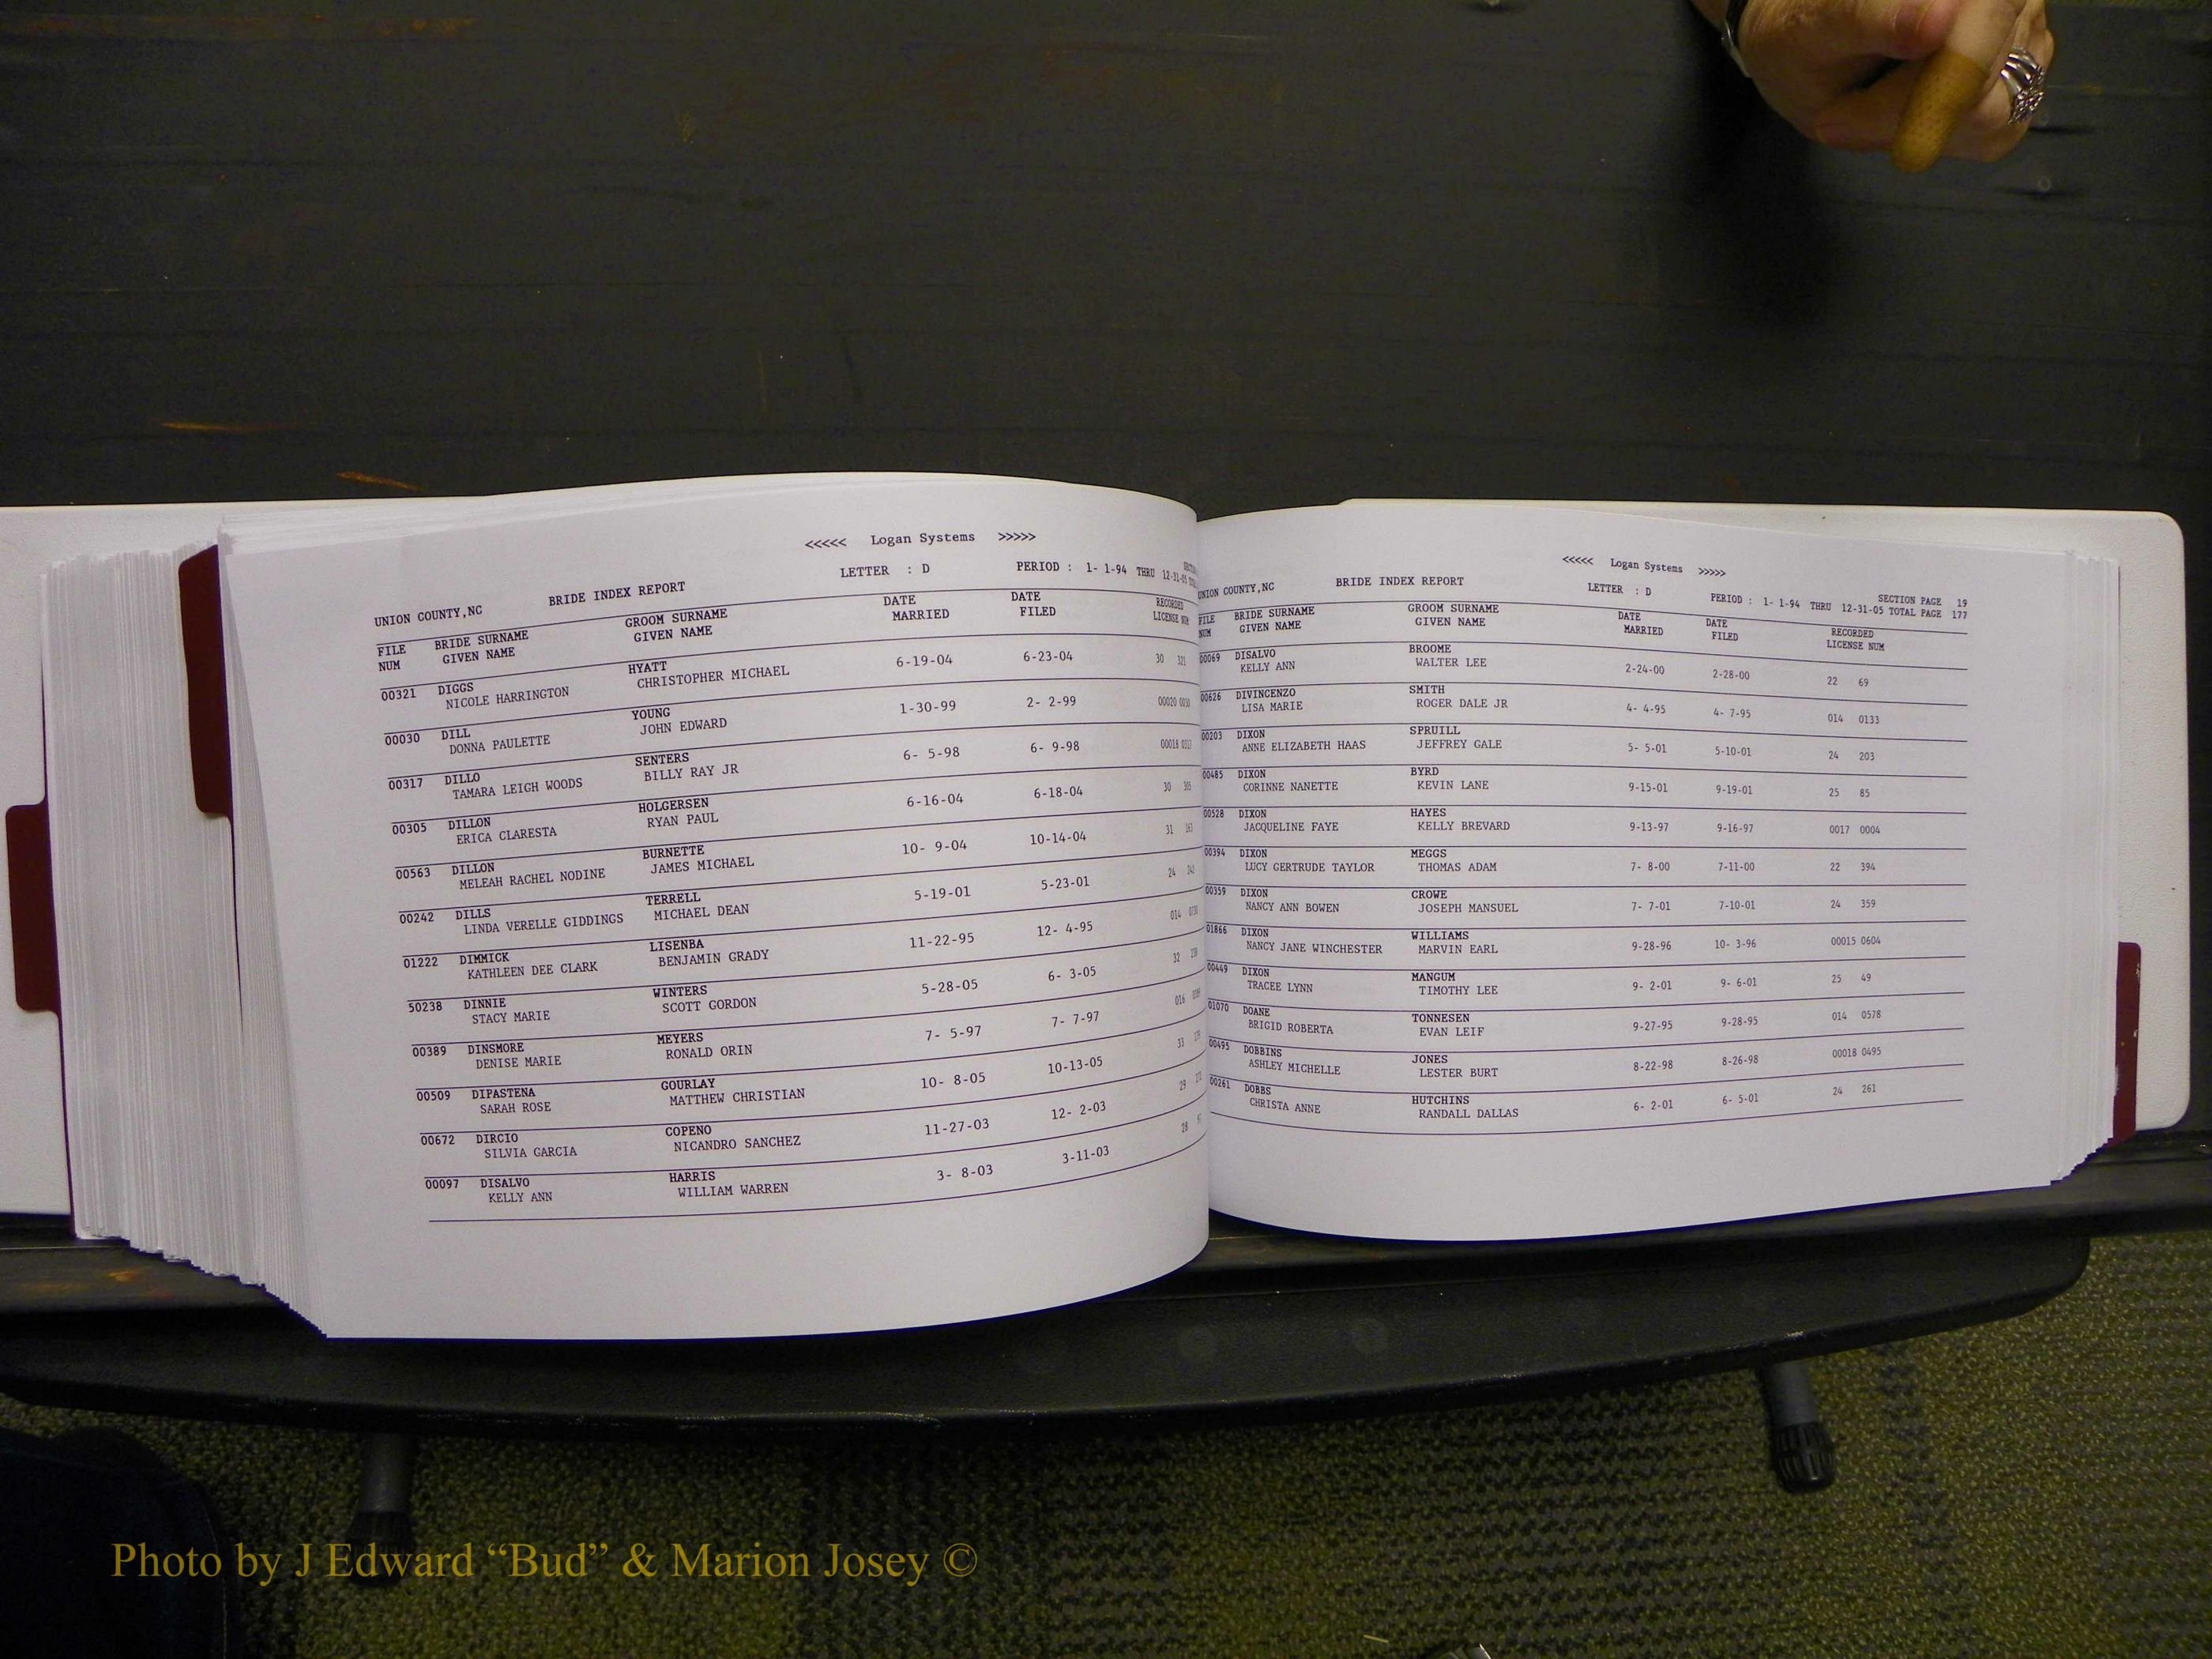 <<<<< Logan Systems >>>>>
UNION COUNTY,NC BRIDE INDEX REPORT LETTER : D PERIOD : 1- 1-94 THRU 12-31-05
FILE BRIDE SURNAME GROOM SURNAME DATE DATE RECORDED
NUM GIVEN NAME GIVEN NAME MARRIED FILED LICENSE NUM
00321 DIGGS HYATT 6-19-04 6-23-04 30 321
NICOLE HARRINGTON CHRISTOPHER MICHAEL
00030 DILL YOUNG 1-30-99 2- 2-99 00020
DONNA PAULETTE JOHN EDWARD
00317 DILLO SENTERS 6- 5-98 6- 9-98 00018
TAMARA LEIGH WOODS BILLY RAY JR
00305 DILLON HOLGERSEN 6-16-04 6-18-04 30
ERICA CLARESTA RYAN PAUL
00563 DILLON BURNETTE 10- 9-04 10-14-04 31
MELEAH RACHEL NODINE JAMES MICHAEL
00242 DILLS TERRELL 5-19-01 5-23-01 24
LINDA VERELLE GIDDINGS MICHAEL DEAN
01222 DIMMICK LISENBA 11-22-95 12- 4-95 014
KATHLEEN DEE CLARK BENJAMIN GRADY
50238 DINNIE WINTERS 5-28-05 6- 3-05 32
STACY MARIE SCOTT GORDON
00389 DINSMORE MEYERS 7- 5-97 7- 7-97 016
DENISE MARIE RONALD ORIN
00509 DIPASTENA GOURLAY 10- 8-05 10-13-05 33
SARAH ROSE MATTHEW CHRISTIAN
00672 DIRCIO COPENO 11-27-03 12- 2-03 29
SILVIA GARCIA NICANDRO SANCHEZ
00097 DISALVO HARRIS 3- 8-03 3-11-03 28
KELLY ANN WILLIAM WARREN
<<<<< Logan Systems >>>>>
UNION COUNTY,NC BRIDE INDEX REPORT LETTER : D SECTION PAGE 19
PERIOD : 1- 1-94 THRU 12-31-05 TOTAL PAGE 177
FILE BRIDE SURNAME GROOM SURNAME DATE DATE RECORDED
NUM GIVEN NAME GIVEN NAME MARRIED FILED LICENSE NUM
00069 DISALVO BROOME 2-24-00 2-28-00 22 69
KELLY ANN WALTER LEE
00626 DIVINCENZO SMITH 4- 4-95 4- 7-95 014 0133
LISA MARIE ROGER DALE JR
00203 DIXON SPRUILL 5- 5-01 5-10-01 24 203
ANNE ELIZABETH HAAS JEFFREY GALE
00485 DIXON BYRD 9-15-01 9-19-01 25 85
CORINNE NANETTE KEVIN LANE
00528 DIXON HAYES 9-13-97 9-16-97 0017 0004
JACQUELINE FAYE KELLY BREVARD
00394 DIXON MEGGS 7- 8-00 7-11-00 22 394
LUCY GERTRUDE TAYLOR THOMAS ADAM
00359 DIXON CROWE 7- 7-01 7-10-01 24 359
NANCY ANN BOWEN JOSEPH MANSUEL
01866 DIXON WILLIAMS 9-28-96 10- 3-96 00015 0604
NANCY JANE WINCHESTER MARVIN EARL
00449 DIXON MANGUM 9- 2-01 9- 6-01 25 49
TRACEE LYNN TIMOTHY LEE
01070 DOANE TONNESEN 9-27-95 9-28-95 014 0578
BRIGID ROBERTA EVAN LEIF
00495 DOBBINS JONES 8-22-98 8-26-98 00018 0495
ASHLEY MICHELLE LESTER BURT
00261 DOBBS HUTCHINS 6- 2-01 6- 5-01 24 261
CHRISTA ANNE RANDALL DALLAS
Photo by J Edward “Bud” & Marion Josey ©